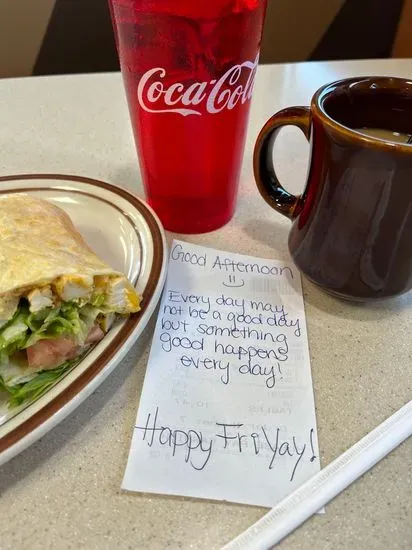 Coca-Cola
Good Afternoon
Every day may
not be a good day
but something
good happens
every day!
Happy FriYay!